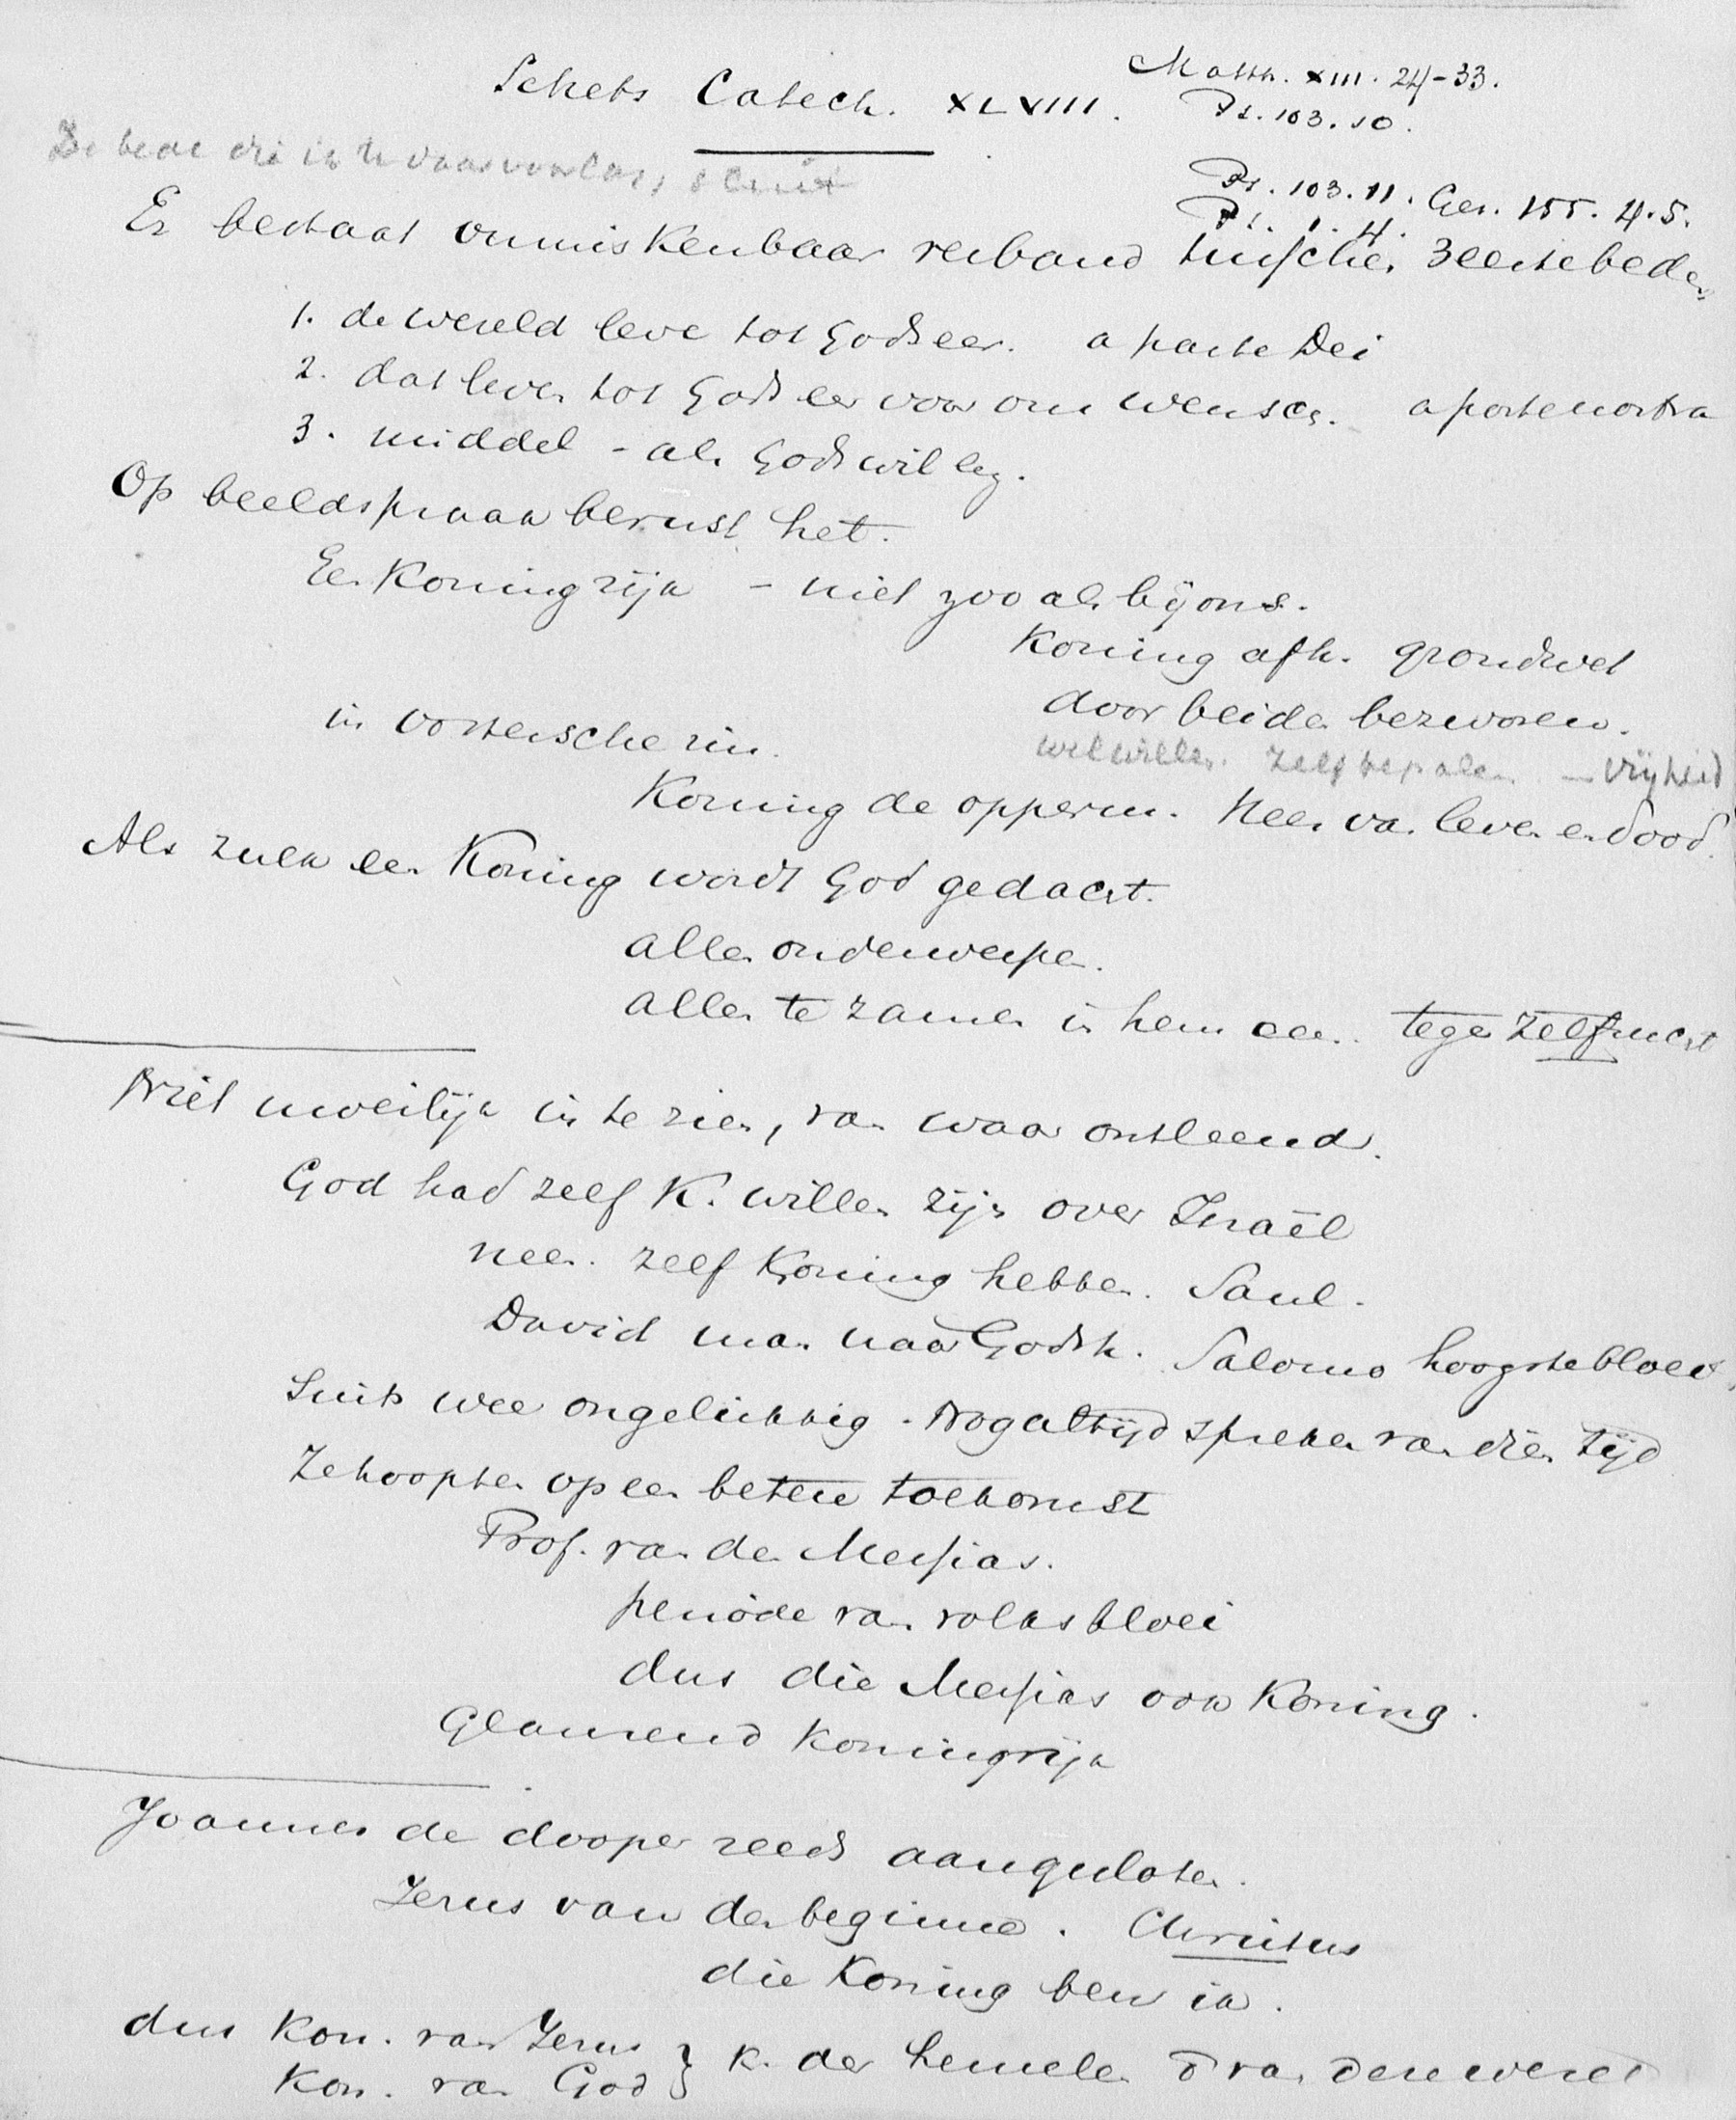 Schets Catech. XLVIII.
Matth. XIII. 24-33.
Ps. 103. 10.
Ps. 103. 11. Gez. 155. 4. 5.
Ps. 1. 4.
De bede die in
Er bestaat onmiskenbaar verband tusschen 3 eerste beden
1. de wereld leve tot Gods eer. a parte Dei
2. dat leven tot Gods eer voor ons wensch. a parte nostra
3. middel - als Gods wil
Op beeldspraak berust het.
Een Koningrijk - niet zooals bij ons.
Koning afh. grondwet
door beiden bezworen.
welwillen. zelf bepalen - vrijheid
in oostersche zin.
Koning de opperm. Heer van leven en dood.
Als zulk een Koning wordt God gedacht.
allen onderworpen.
allen te zamen in hem een. tegen zelfzucht
Niet moeilijk in te zien, van waar ontleend.
God had zelf K. willen zijn over Israël
neen. zelf Koning hebben. Saul.
David man naar Gods h. Salomo hoogste bloei.
Sinds wee ongelukkig. Nog altijd spreken van dien tijd
Ze hoopten op een betere toekomst
Prof. van den Messias.
periode van volksbloei
dus die Messias ook Koning.
Glansend Koningrijk
Joannes de dooper reeds aangesloten.
Jezus van den beginne. Christus
die Koning ben ik.
dus Kon. van Jezus } K. der hemelen van deze wereld
Kon. van God